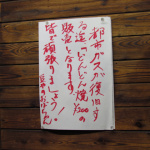 都市ガスが復旧す
る迄「どんどん焼」¥200の
販売となります。
皆で頑張りましょう!